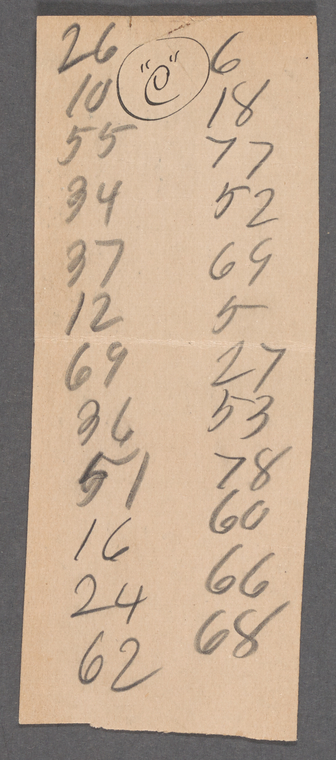 "C"
26
10
55
34
37
12
69
36
51
16
24
62
6
18
77
52
69
5
27
53
78
60
66
68